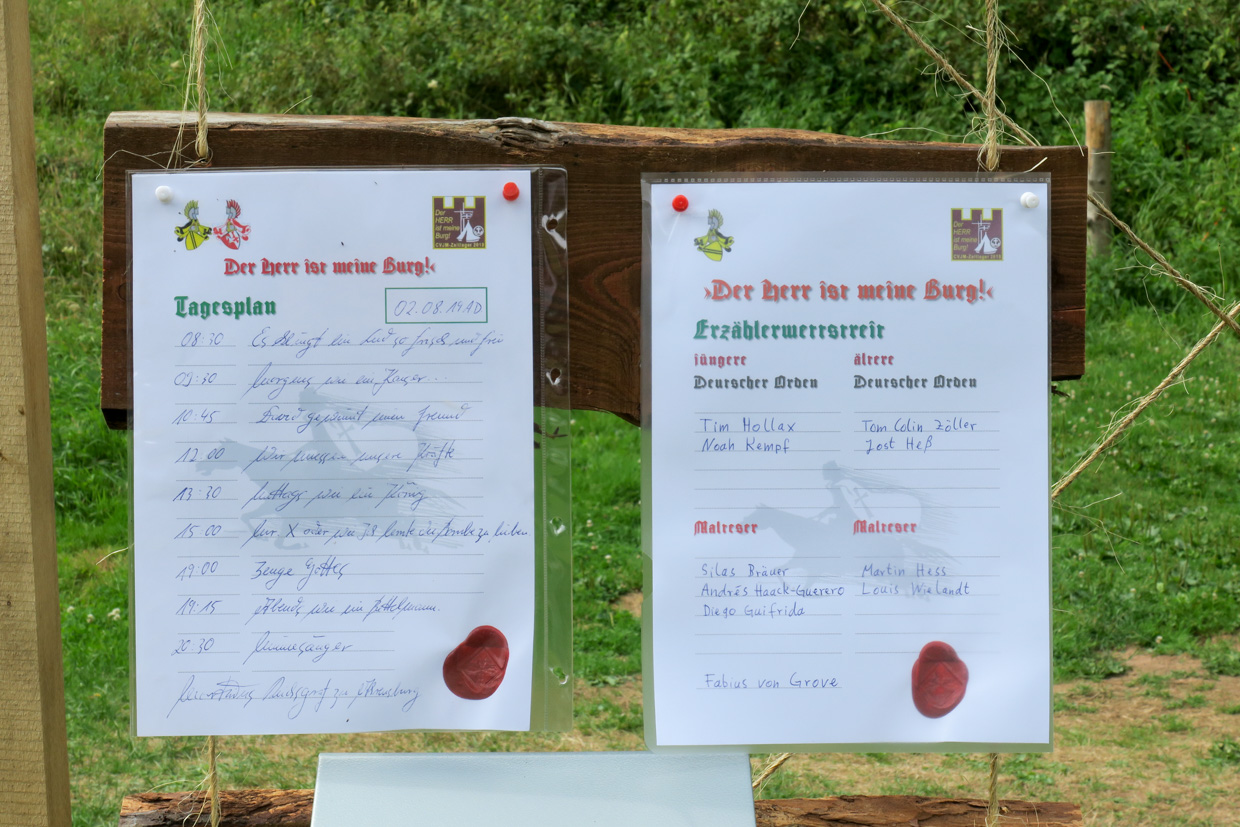 Der
HERR
ist meine
Burg!
CVJM-Zeltlager 2019
Der Herr ist meine Burg!‹
Tagesplan
02.08.19AD
08:30 Es klingt ein Lied so frisch und frei
09:30 Morgens wie ein Kaiser...
10:45 David gewinnt einen Freund
12.00 Wir messen unsere Kräfte
13:30 Mittags wie ein König
15:00 Mr. X oder wie J.B. lernte die Bombe zu lieben
19:00 Zeuge Gottes
19:15 Abends wie ein Bettelmann.
20.30 Minnesänger
zu
Der
HERR
ist meine
Burg!
CVJM-Zeltlager 2019
›Der Herr ist meine Burg!‹
Erzählerwettstreit
jüngere ältere
Deutscher Orden Deutscher Orden
Tim Mollax Tom Colin Zöller
Noah Kempf Jost Heß
Malteser Malteser
Silas Bräuer Martin Hess
Andrés Haack-Guerero Louis Wielandt
Diego Guifrida
Fabius von Grove